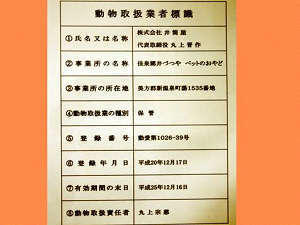 動物取扱業者標識
①氏名又は名称 株式会社 井筒屋
代表取締役 丸上晋作
②事業所の名称 佳泉郷井づつや ペットのおやど
③事業所の所在地 美方郡新温泉町湯1535番地
④動物取扱業の種別 保管
⑤登録番号 動愛第1026-39号
⑥登録年月日 平成20年12月17日
⑦有効期間の末日 平成25年12月16日
⑧動物取扱責任者 丸上宗慶